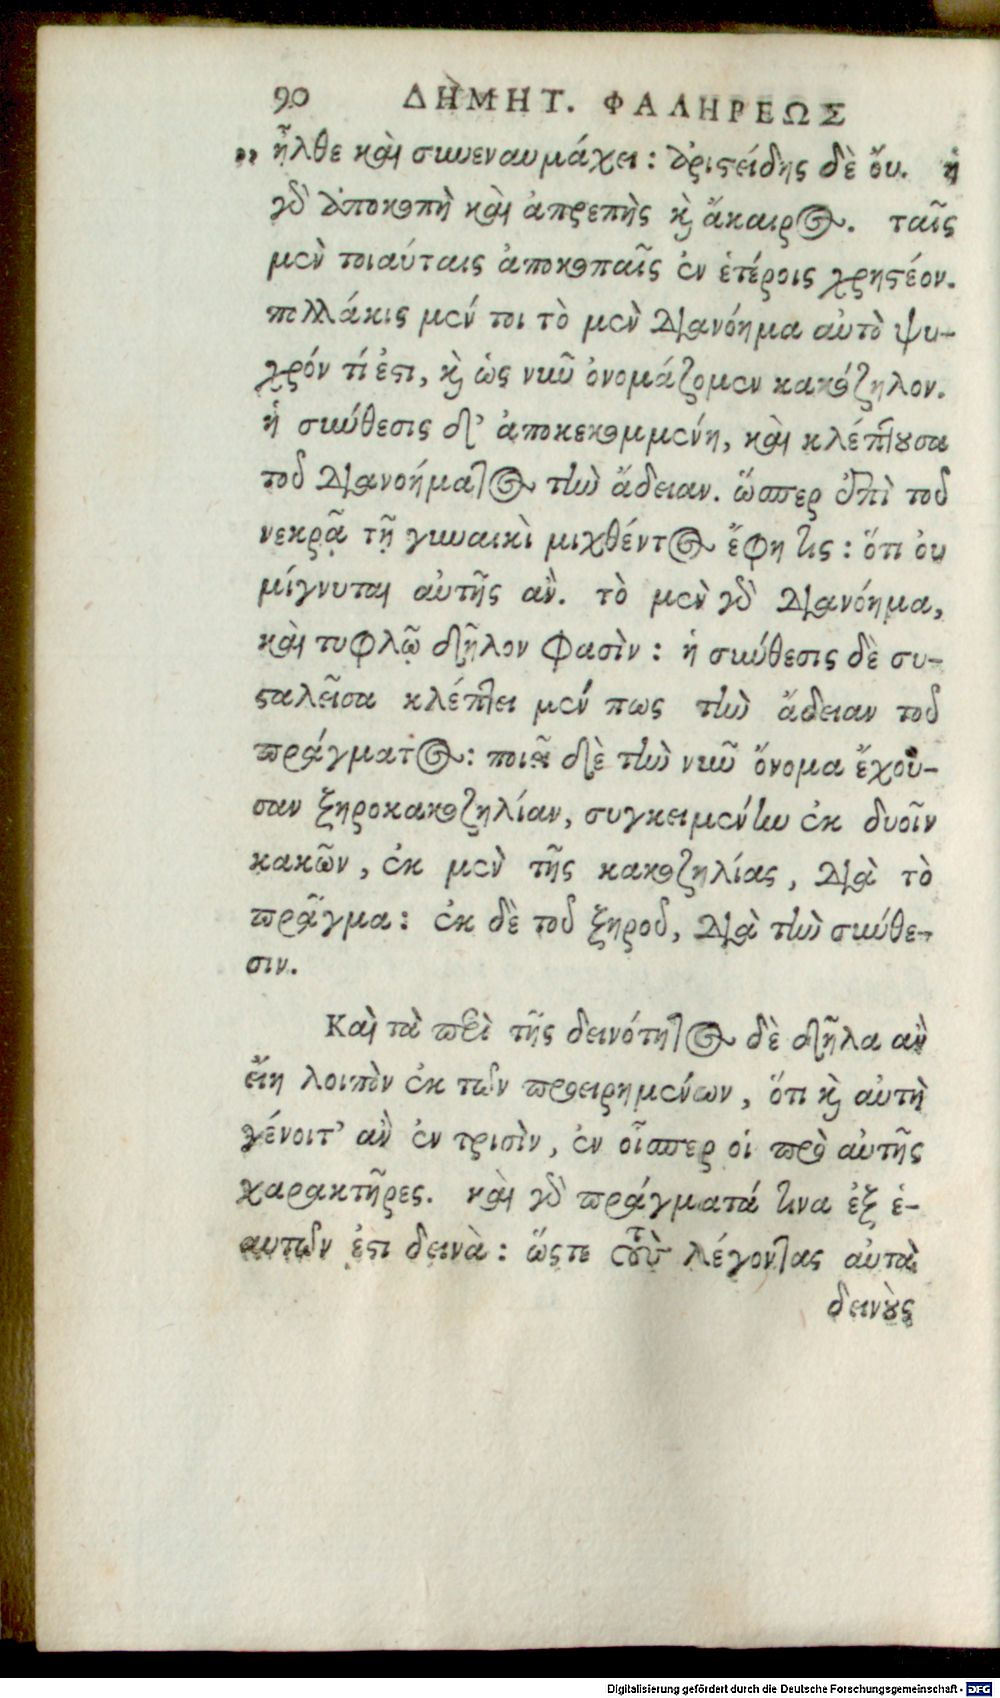 90 ΔΗΜΗΤ. ΦΑΛΗΡΕΩΣ
„ ἦλθε καὶ συνεναυμάχει: Ἀριστείδης δὲ οὔ. ἡ
γὸ ἀποκοπὴ καὶ ἀπρεπὴς κὶ ἄκαιρος. ταῖς
μὲν τοιαύταις ἀποκοπαῖς ἐν ἑτέροις χρηστέον.
πολλάκις μέν τοι τὸ μὲν διανόημα αὐτὸ ψυ-
χρόν τί ἐστι, κὶ ὡς νῦν ὀνομάζομεν κακόζηλον.
ἡ σύνθεσις δ' ἀποκεκομμένη, καὶ κλέπτουσα
τοῦ διανοήματος τὴν ἄδειαν. ὥσπερ ἐπὶ τοῦ
νεκρᾷ τῇ γυναικὶ μιχθέντος ἔφη τις: ὅτι οὐ
μίγνυται αὐτῆς ἄν. τὸ μὲν γὸ διανόημα,
καὶ τυφλῷ δῆλον φασὶν: ἡ σύνθεσις δὲ συ-
σταλεῖσα κλέπτει μέν πως τὴν ἄδειαν τοῦ
πράγματος: ποιᾶ δὲ τὴν νῦν ὄνομα ἔχου-
σαν ξηροκακοζηλίαν, συγκειμένην ἐκ δυοῖν
κακῶν, ἐκ μὲν τῆς κακοζηλίας, διὰ τὸ
πρᾶγμα: ἐκ δὲ τοῦ ξηροῦ, διὰ τὴν σύνθε-
σιν.
Καὶ τὰ περὶ τῆς δεινότητος δὲ δῆλα ἂν
εἴη λοιπὸν ἐκ τῶν προειρημένων, ὅτι κὶ αὐτὴ
γένοιτ' ἂν ἐν τρισὶν, ἐν οἷσπερ οἱ πρὸ αὐτῆς
χαρακτῆρες. καὶ γὸ πράγματά τινα ἐξ ἑ-
αυτῶν ἐστι δεινὰ: ὥστε τοὺς λέγοντας αὐτὰ
δεινοὺς
Digitalisierung gefördert durch die Deutsche Forschungsgemeinschaft - DFG